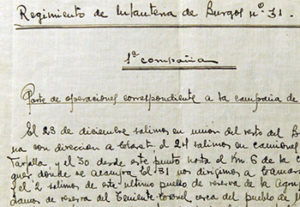 Regimiento de Infanteria de Burgos nº 31.
1ª compañia
Parte de operaciones correspondiente a la campaña de
El 23 de diciembre salimos en union del resto del B
na con direccion a el 24 salimos en camiones
Tafalla y el 30 desde este punto hasta el Km 6 de la c
guer donde se acampa. El 31 nos dirigimos a
y el 2 salimos de este ultimo pueblo de reserva de la Agru
de reserva del Teniente Coronel cerca del pueblo de